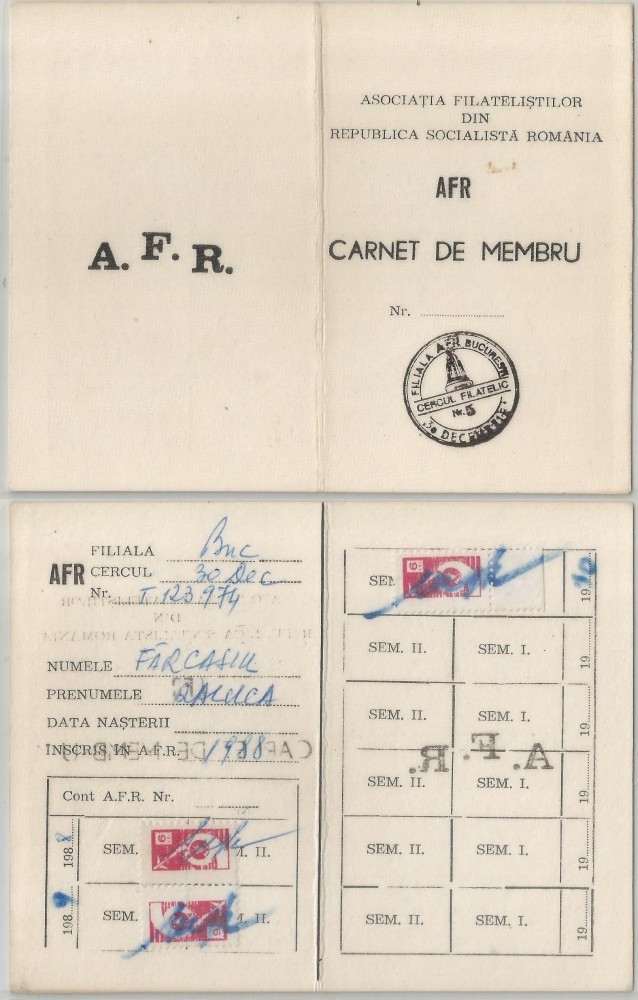 A. F. R.
ASOCIAȚIA FILATELIȘTILOR
DIN
REPUBLICA SOCIALISTĂ ROMÂNIA
AFR
CARNET DE MEMBRU
Nr.
FILIALA A.F.R. BUCUREȘTI
CERCUL FILATELIC
Nr. 5
30 DECEMBRIE
AFR
FILIALA Buc
CERCUL 30 Dec
Nr. T. 123974
NUMELE FĂRCAȘIU
PRENUMELE RALUCA
DATA NAȘTERII
ÎNSCRIS ÎN A.F.R. 1988
Cont A.F.R. Nr.
1988 SEM. M. II.
1989 SEM. M. II.
SEM 1990
SEM. II. SEM. I. 19
SEM. II. SEM. I. 19
SEM. II. SEM. I. 19
SEM. II. SEM. I. 19
SEM. II. SEM. I. 19
A. F. R.